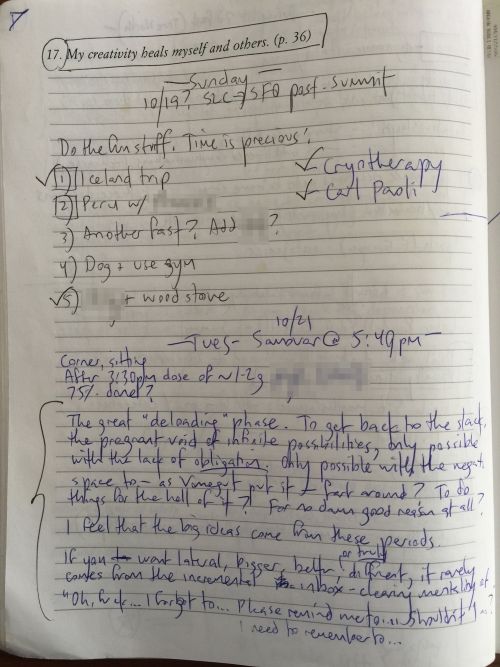 17. My creativity heals myself and others. (p. 36)
Sunday
10/19? SLC → SFO post-summit
Do the fun stuff. Time is precious!
✓ 1) Iceland trip
✓ Cryotherapy
2) Peru w/
✓ Carl Paoli
3) Another fast? Add ?
4) Dog + use gym
✓ 5) + wood stove
10/21
— Tues - Samovar @ 5:49pm —
Corner, sitting
After 3:30pm dose of ~1-2g
75% done?
The great "deloading" phase. To get back to the slack,
the pregnant void of infinite possibilities, only possible
with the lack of obligation. Only possible with the negat.
space to — as Vonnegut put it — fart around? To do
things for the hell of it? For no damn good reason at all?
I feel that the big ideas come from these periods.
If you want lateral, bigger, better, or truly different, it rarely
comes from the incremental inbox-clearing mentality of
"Oh, fuck... I forgot to... Please remind me to... Shouldn't I...?
I need to remember to...